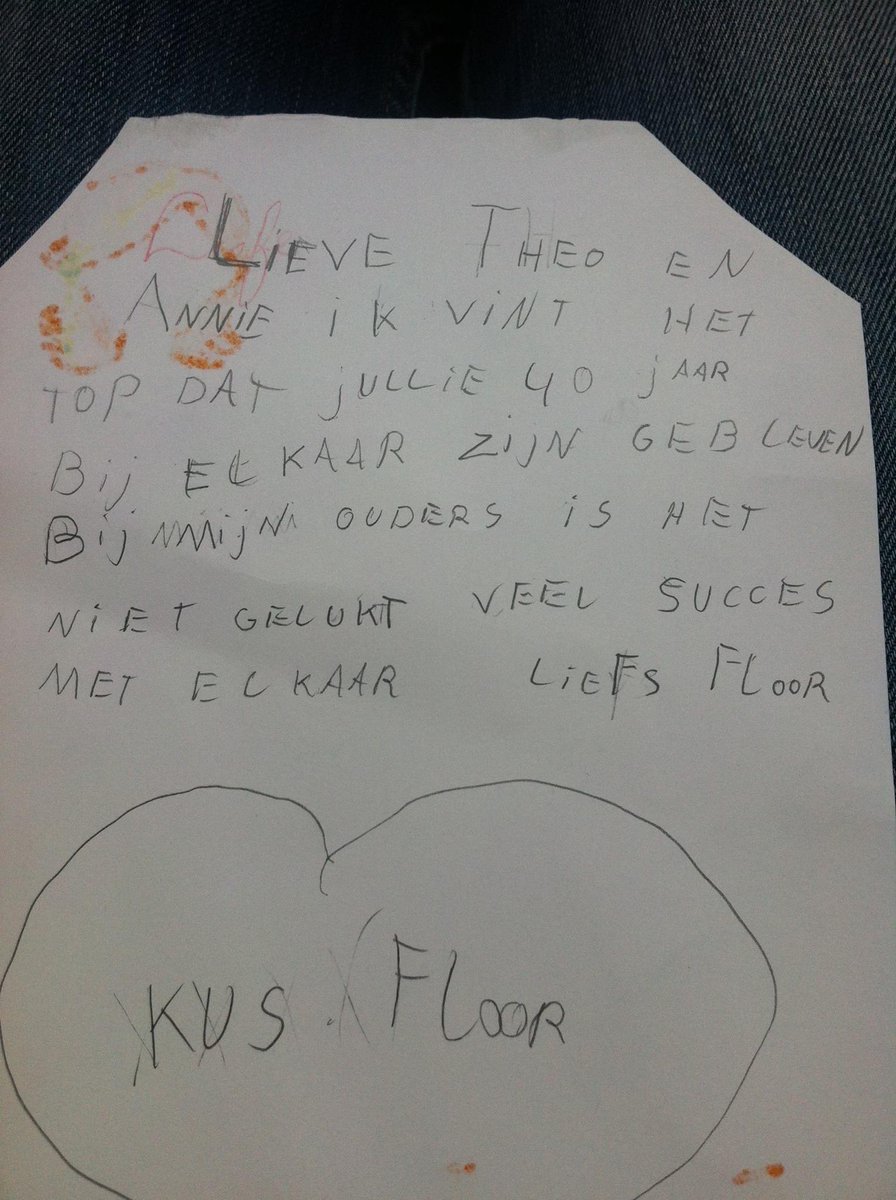 LiEVE THEO EN
ANNiE iK ViNT HET
TOP DAT jULLiE 40 jAAR
Bij ELKAAR ZijN GEBLEVEN
Bij MijN OUDERS iS HET
NiET GELUKT VEEL SUCCES
MET ELKAAR LiEFS FLOOR
KUS FLOOR